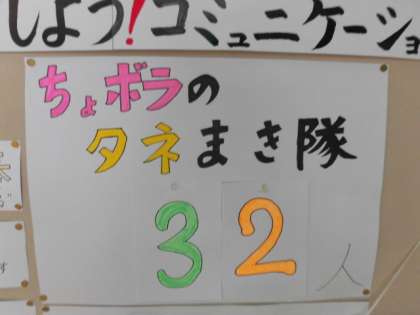 しよう!コミュニケーショ
ちょボラの
タネまき隊
32人